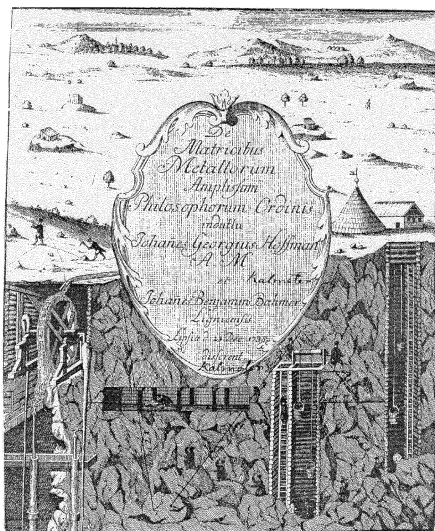 De
Matricibus
Metallorum
Amplissimi
Philosophorum Ordinis
indultu
Iohanes Georgius Hoffman
A. M
et
Iohanes Benjamin Dahmer
Ligniensis
Lipsiæ d.
disserent